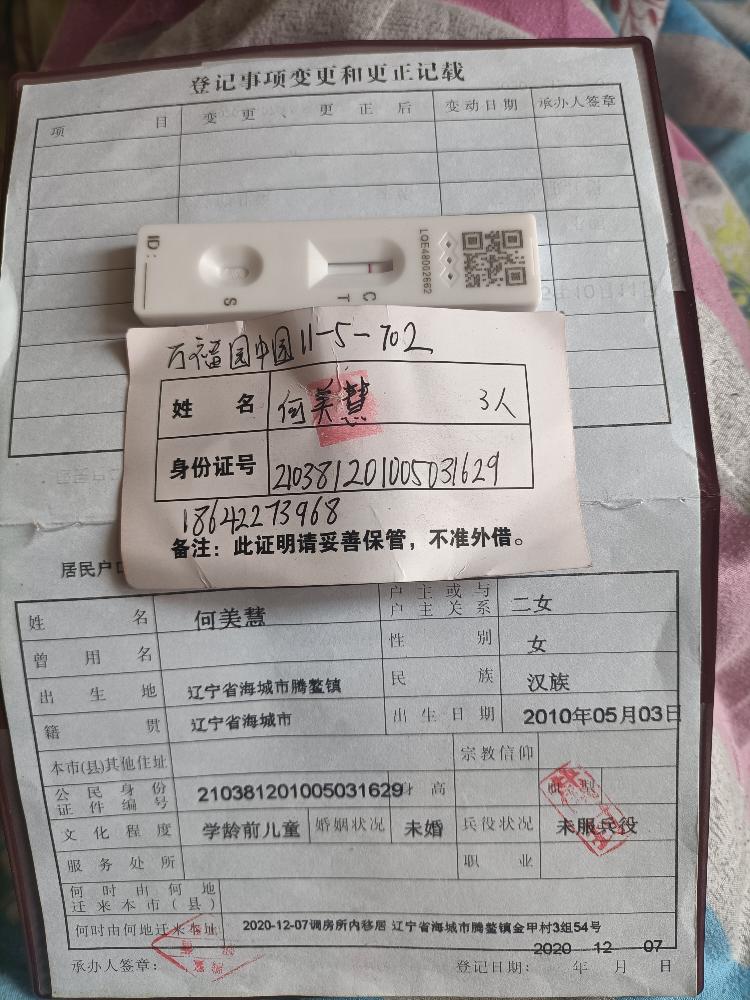 登记事项变更和更正记载
项 目 变 更 、 更 正 后 变动日期 承办人签章
ID:
S
C
T
LOE48002662
万福园中园11-5-702
姓 名 何美慧 3人
身份证号 210381201005031629
18642273968
备注：此证明请妥善保管，不准外借。
居民户口
姓 名 何美慧 户主或与户主关系 二女
曾 用 名 性 别 女
出 生 地 辽宁省海城市腾鳌镇 民 族 汉族
籍 贯 辽宁省海城市 出 生 日 期 2010年05月03日
本市(县)其他住址 宗教信仰
公民身份证件编号 210381201005031629 身 高
文 化 程 度 学龄前儿童 婚姻状况 未婚 兵役状况 未服兵役
服 务 处 所 职 业
何时由何地迁来本市(县)
何时由何地迁来本址 2020-12-07调房所内移居 辽宁省海城市腾鳌镇金甲村3组54号
2020 12 07
承办人签章： 登记日期： 年 月 日